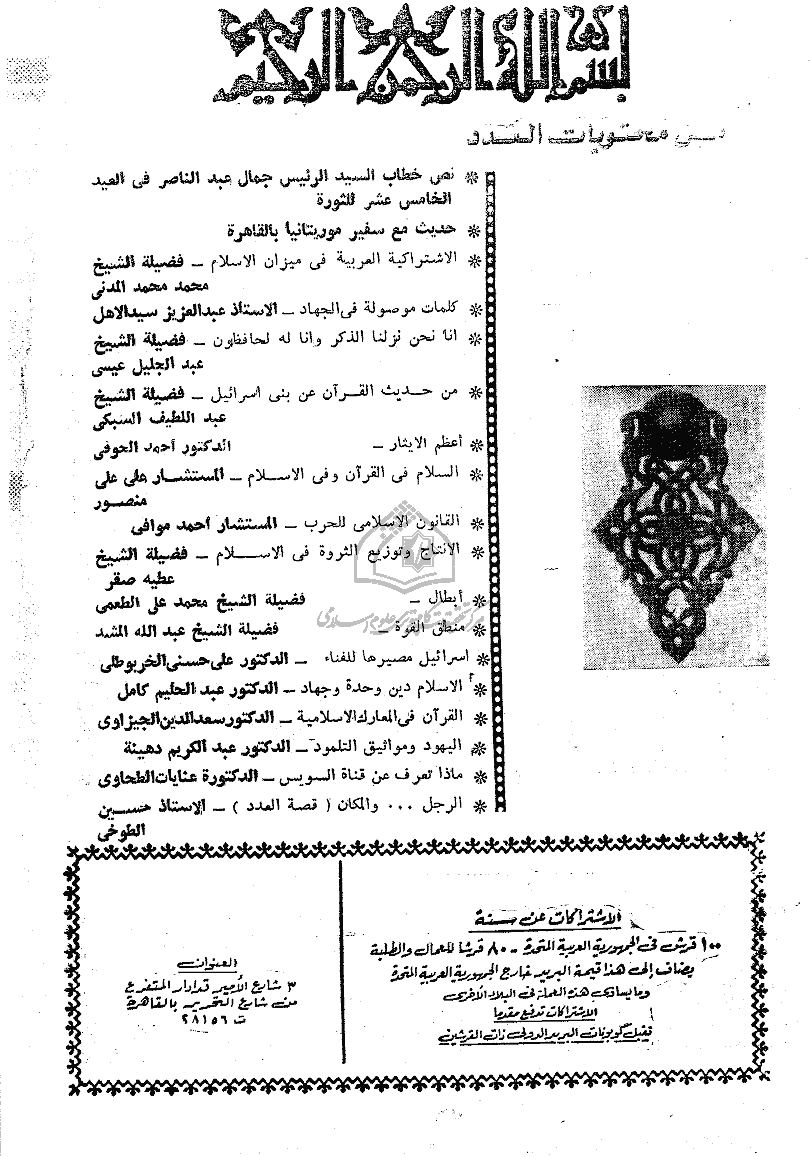 بسم الله الرحمن الرحيم
من محتويات العدد
* نص خطاب السيد الرئيس جمال عبد الناصر فى العيد
الخامس عشر للثورة
* حديث مع سفير موريتانيا بالقاهرة
* الاشتراكية العربية فى ميزان الاسلام ــ فضيلة الشيخ
محمد محمد المدنى
* كلمات موصولة فى الجهاد ــ الاستاذ عبدالعزيز سيدالاهل
* انا نحن نزلنا الذكر وانا له لحافظون ــ فضيلة الشيخ
عبد الجليل عيسى
* من حـديث القـرآن عن بنى اسرائيل ــ فضيلة الشيخ
عبد اللطيف السبكى
* أعظم الايثار ــ الدكتور أحمد الحوفى
* السلام فى القرآن وفى الاسـلام ــ المستشـار على على
منصـور
* القانون الاسلامى للحرب ــ المستشار أحمد موافى
* الانتاج وتوزيع الثروة فى الاسـلام ــ فضيلة الشيخ
عطيه صقر
* أبطال ــ فضيلة الشيخ محمد على الطعمى
مركز تحقيقات كامپيوترى علوم اسلامى
* منطق القوة ــ فضيلة الشيخ عبد الله المشد
* اسرائيل مصيرها للفناء ــ الدكتور على حسنى الخربوطلى
* الاسلام دين وحدة وجهاد ــ الدكتور عبد الحليم كامل
* القرآن فى المعارك الاسلامية ــ الدكتور سعد الدين الجيزاوى
* اليهود ومواثيق التلمود ــ الدكتور عبد الكريم دهينة
* ماذا تعرف عن قناة السويس ــ الدكتورة عنايات الطحاوى
* الرجل ... والمكان ( قصة العدد ) ــ الاستاذ حسـين
الطوخى
الاشتراكات عن سنة
١٠٠ قرش فى الجمهورية العربية المتحدة - ٨٠ قرشا للعمال والطلبة
يضاف إلى هذا قيمة البريد خارج الجمهورية العربية المتحدة
وما يساوى هذه العملة فى البلاد الأخرى
الاشتراكات تدفع مقدما
تقبل كوبونات البريد الدولى ذات القرشين
العنوان
٣ شارع الأمير قدادار المتفرع
من شارع التحرير بالقاهرة
ت ٢٨١٥٦